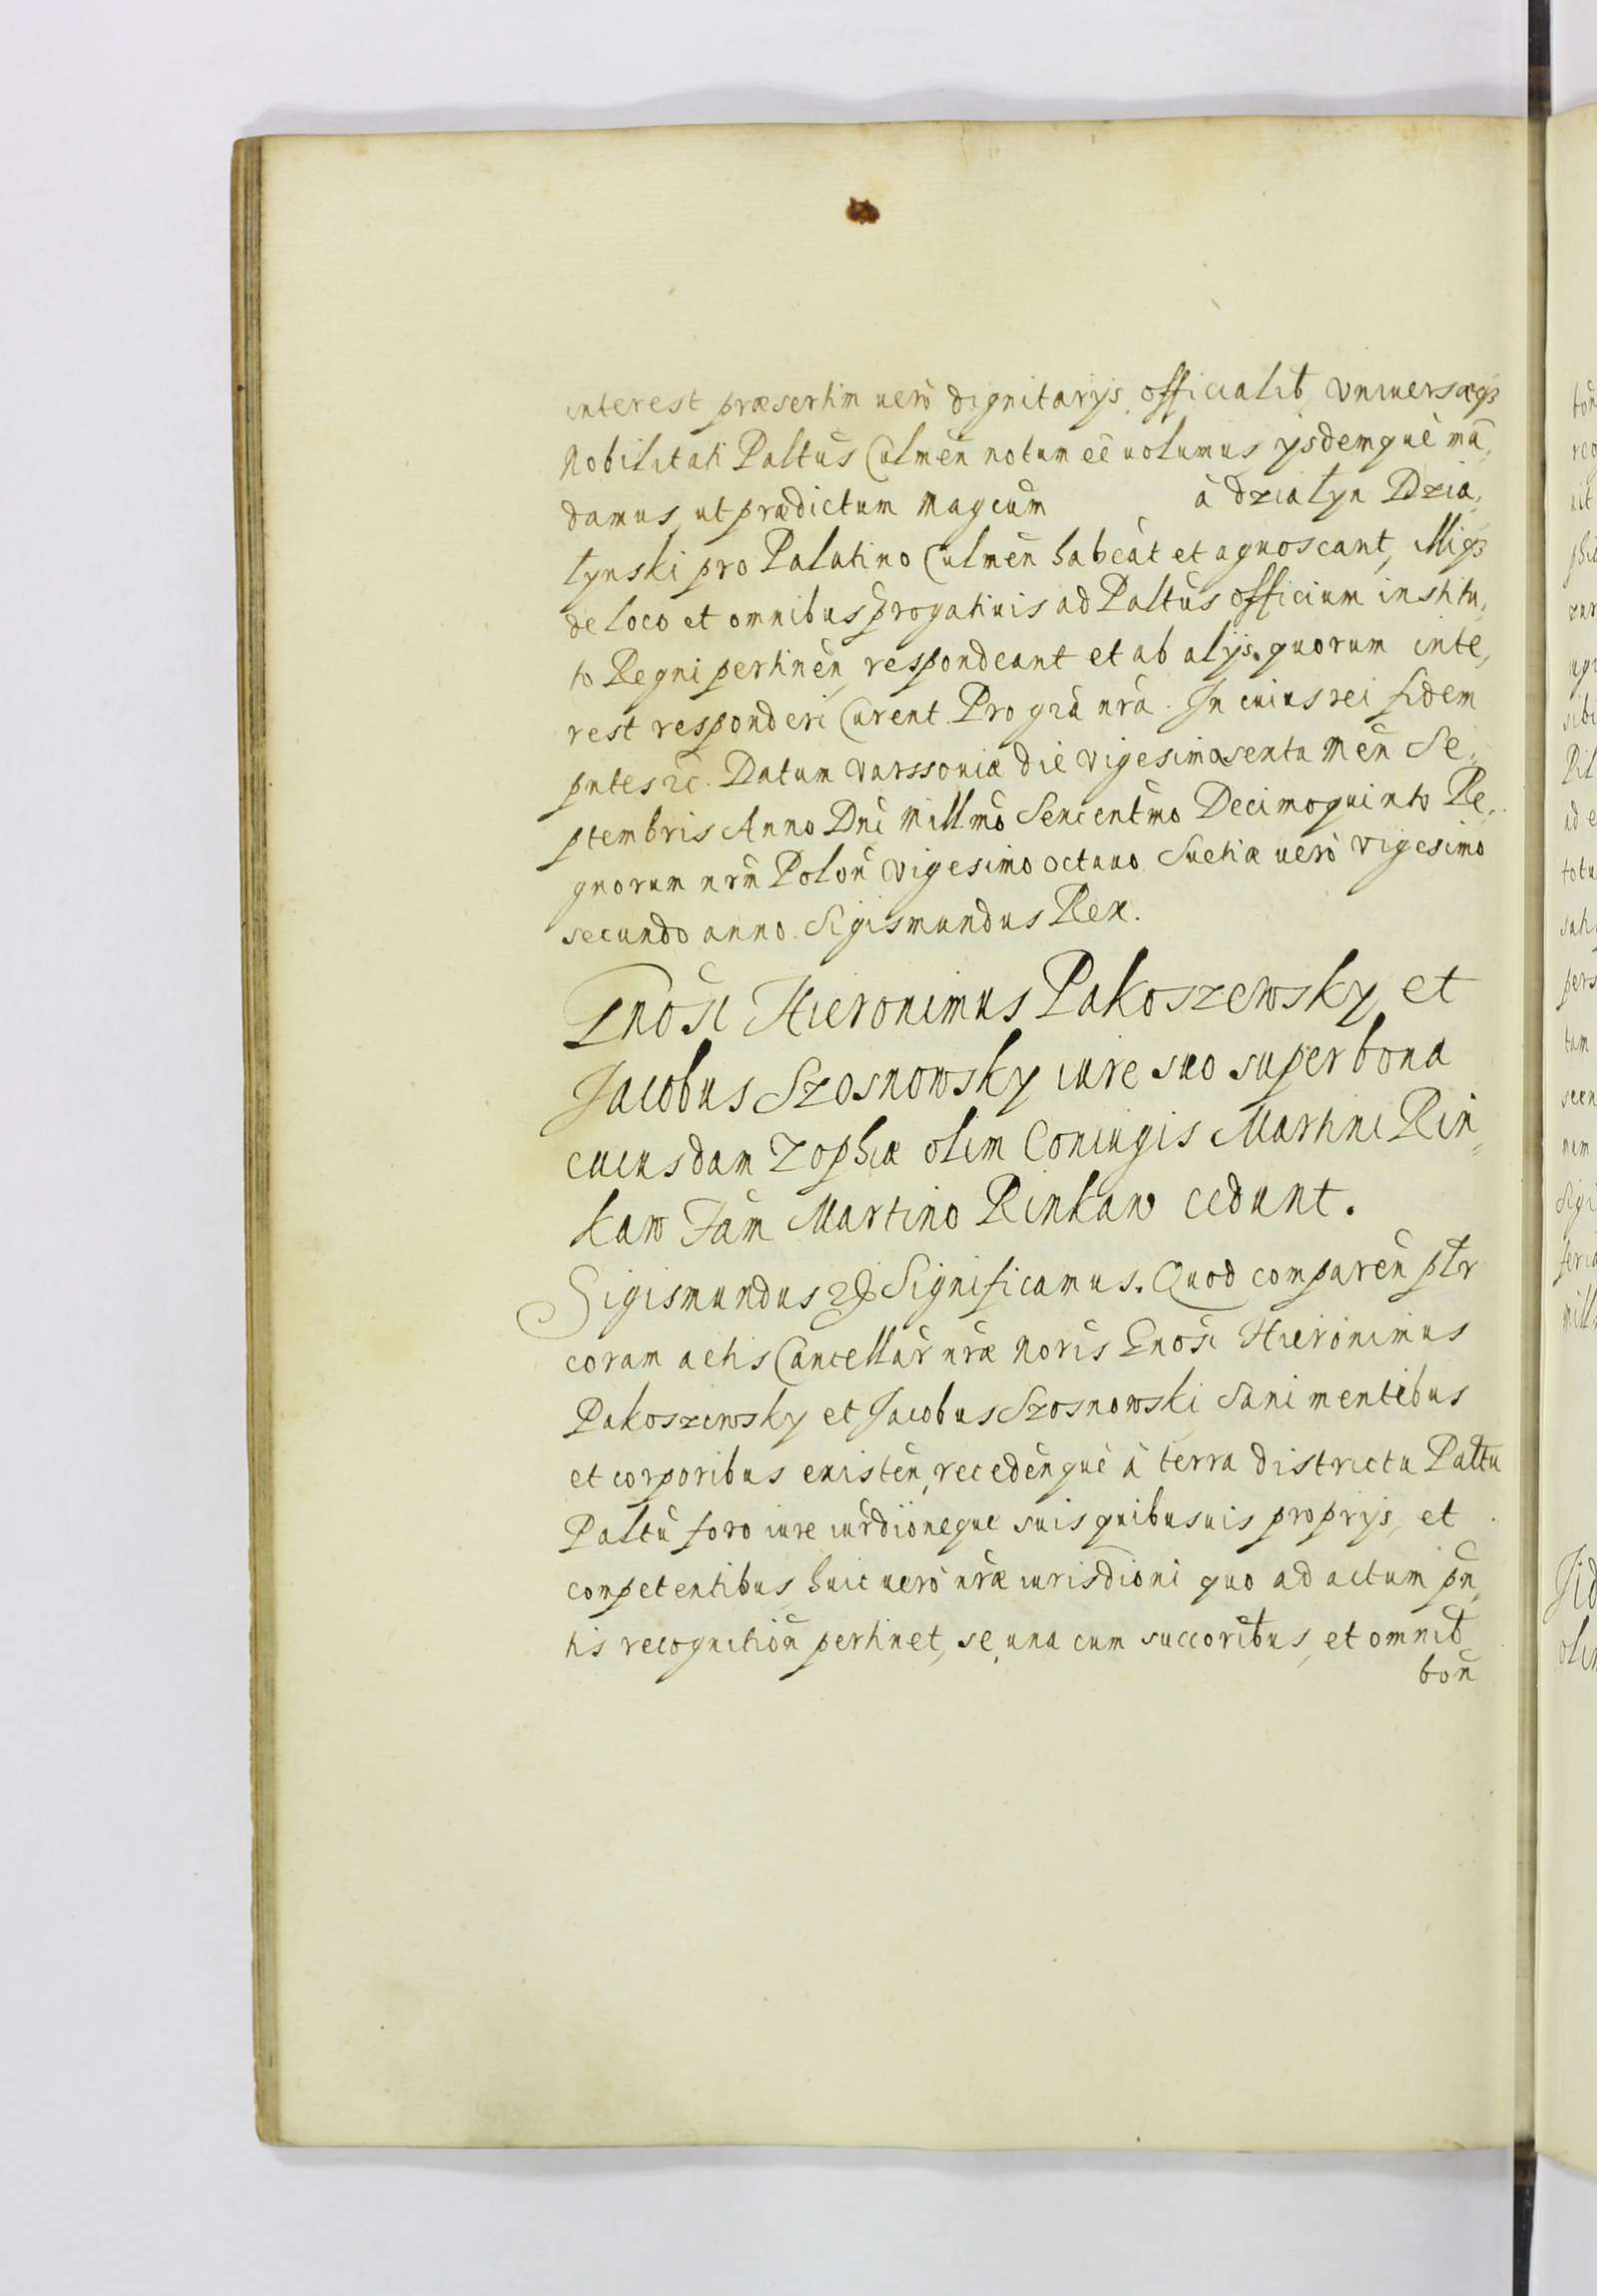 interest præsertim uerò dignitarijs, officialib, Vniuersæq3
Nobilitati Paltus Culmen notum eē uolumus ijsdemque mā,
damus, ut prædictum Magcum à Dzialyn Dzia,
lynski pro Palatino Culmen habeat et agnoscant, Illiq3
de loco et omnibus progatiuis ad Paltus officium institu,
to Regni pertinen, respondeant et ab alijs quorum inte,
rest responderi Curent. Pro gra nra. In cuius rei fidem
pntes ꝛc. Datum Varssouiæ die Vigesimasexta Men Se,
ptembris Anno Dni Millmo Sexcentmo Decimoquinto Re,
gnorum nrm Polon Vigesimo octauo. Suetiæ uerò Vigesimo
secundo anno. Sigismundus Rex.
Gnosi Hieronimus Pakoszewsky et
Jacobus Szosnowsky iure suo super bona
cuiusdam Zophiæ olim Coniugis Martini Rin=
kaw Fam Martino Rinkaw cedunt.
Sigismundus ꝛc Significamus. Quod comparen pltr
coram actis Cancellar nræ noris Gnosi Hieronimus
Pakoszewsky et Jacobus Szosnowski Sani mentibus
et corporibus existen, recedenque à terra districtu Paltu
Paltu foro iure iurdioneque suis quibusuis proprijs, et
competentibus, huic uerò nræ iurisdioni quo ad actum pn,
tis recognition pertinet, se, una cum succoribus, et omnib
bon